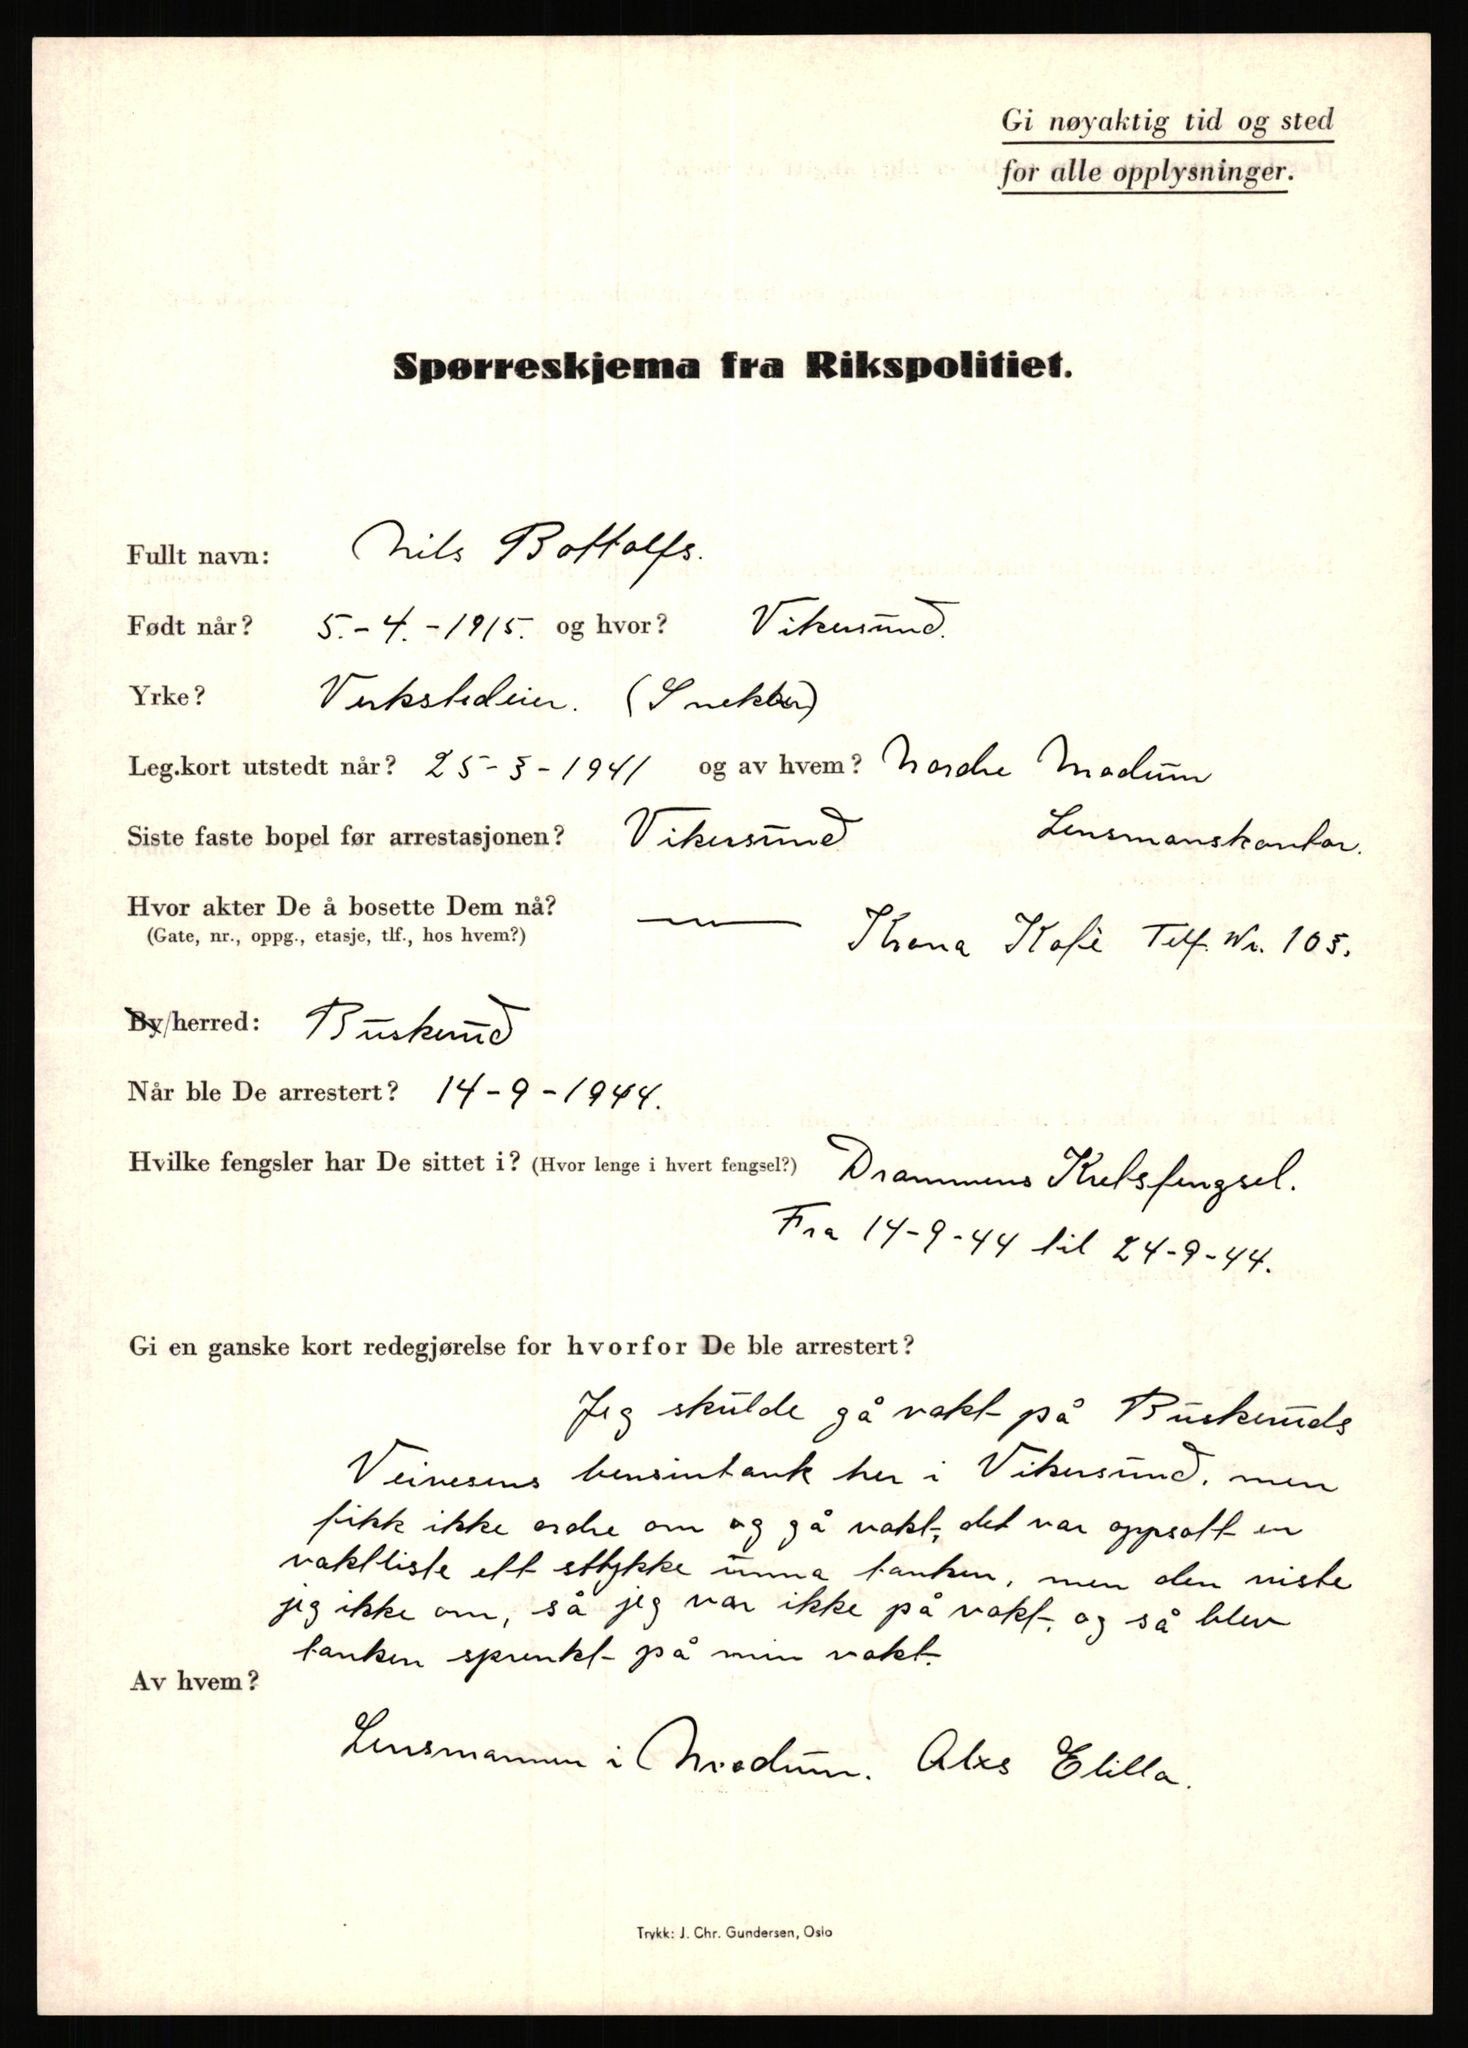 Gi nøyaktig tid og sted
for alle opplysninger.
Spørreskjema fra Rikspolitiet.
Fullt navn: Nils Bottolfs.
Født når? 5.-4.-1915. og hvor? Vikersund.
Yrke? Verkstedeier. (Snekker)
Leg.kort utstedt når? 25-3-1941 og av hvem? Nordre Modum
Siste faste bopel før arrestasjonen? Vikersund Lensmanskontor.
Hvor akter De å bosette Dem nå? —"—
(Gate, nr., oppg., etasje, tlf., hos hvem?) Krona Kafè Telf. Nr. 103.
By/herred: Buskerud
Når ble De arrestert? 14-9-1944.
Hvilke fengsler har De sittet i? (Hvor lenge i hvert fengsel?) Drammens Kretsfengsel.
Fra 14-9-44 til 24-9-44.
Gi en ganske kort redegjørelse for hvorfor De ble arrestert?
Jeg skulde gå vakt på Buskeruds
Veivesens bensintank her i Vikersund. men
fikk ikke ordre om og gå vakt, det var oppsatt en
vaktliste ett stykke unna tanken, men den viste
jeg ikke om, så jeg var ikke på vakt. og så blev
tanken sprenkt på min vakt.
Av hvem?
Lensmannen i Modum. Alxs
Trykk: J. Chr. Gundersen, Oslo